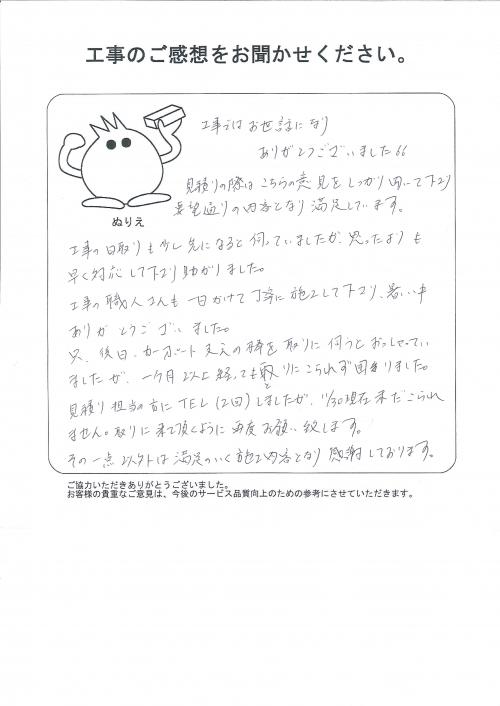 工事のご感想をお聞かせください。
工事ではお世話になり
ありがとうございました。
見積りの際はこちらの意見をしっかり聞いて下さり
要望通りの内容となり満足しています。
ぬりえ
工事の日取りも少し先になると伺っていましたが、思ったよりも
早く対応して下さり助かりました。
工事の職人さんも一日かけて丁寧に施工して下さり、暑い中
ありがとうございました。
只、後日、カーポート支元の棒を取りに伺うとおっしゃってい
ましたが、一ケ月以上経っても取りにこられず困りました。
と
見積り担当の方にTEL(2回)しましたが、11/30現在未だこられ
ません。取りに来て頂くように再度お願い致します。
その一点以外は満足のいく施工内容となり感謝しております。
ご協力いただきありがとうございました。
お客様の貴重なご意見は、今後のサービス品質向上のための参考にさせていただきます。